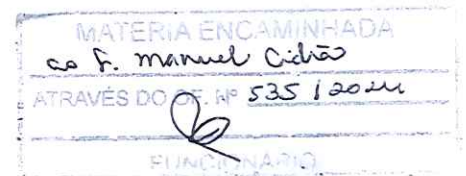 MATERIA ENCAMINHADA
ao Sr. Manuel Cidião
ATRAVÉS DO OF. Nº 535 / 2024
FUNCIONÁRIO